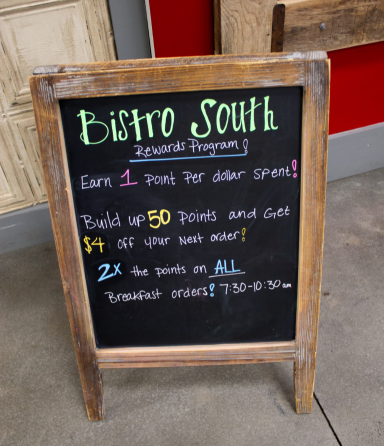 Bistro South
Rewards Program!
Earn 1 Point Per dollar spent!
Build up 50 Points and Get
$4 off your Next order!
2x the points on ALL
Breakfast orders! 7:30-10:30am